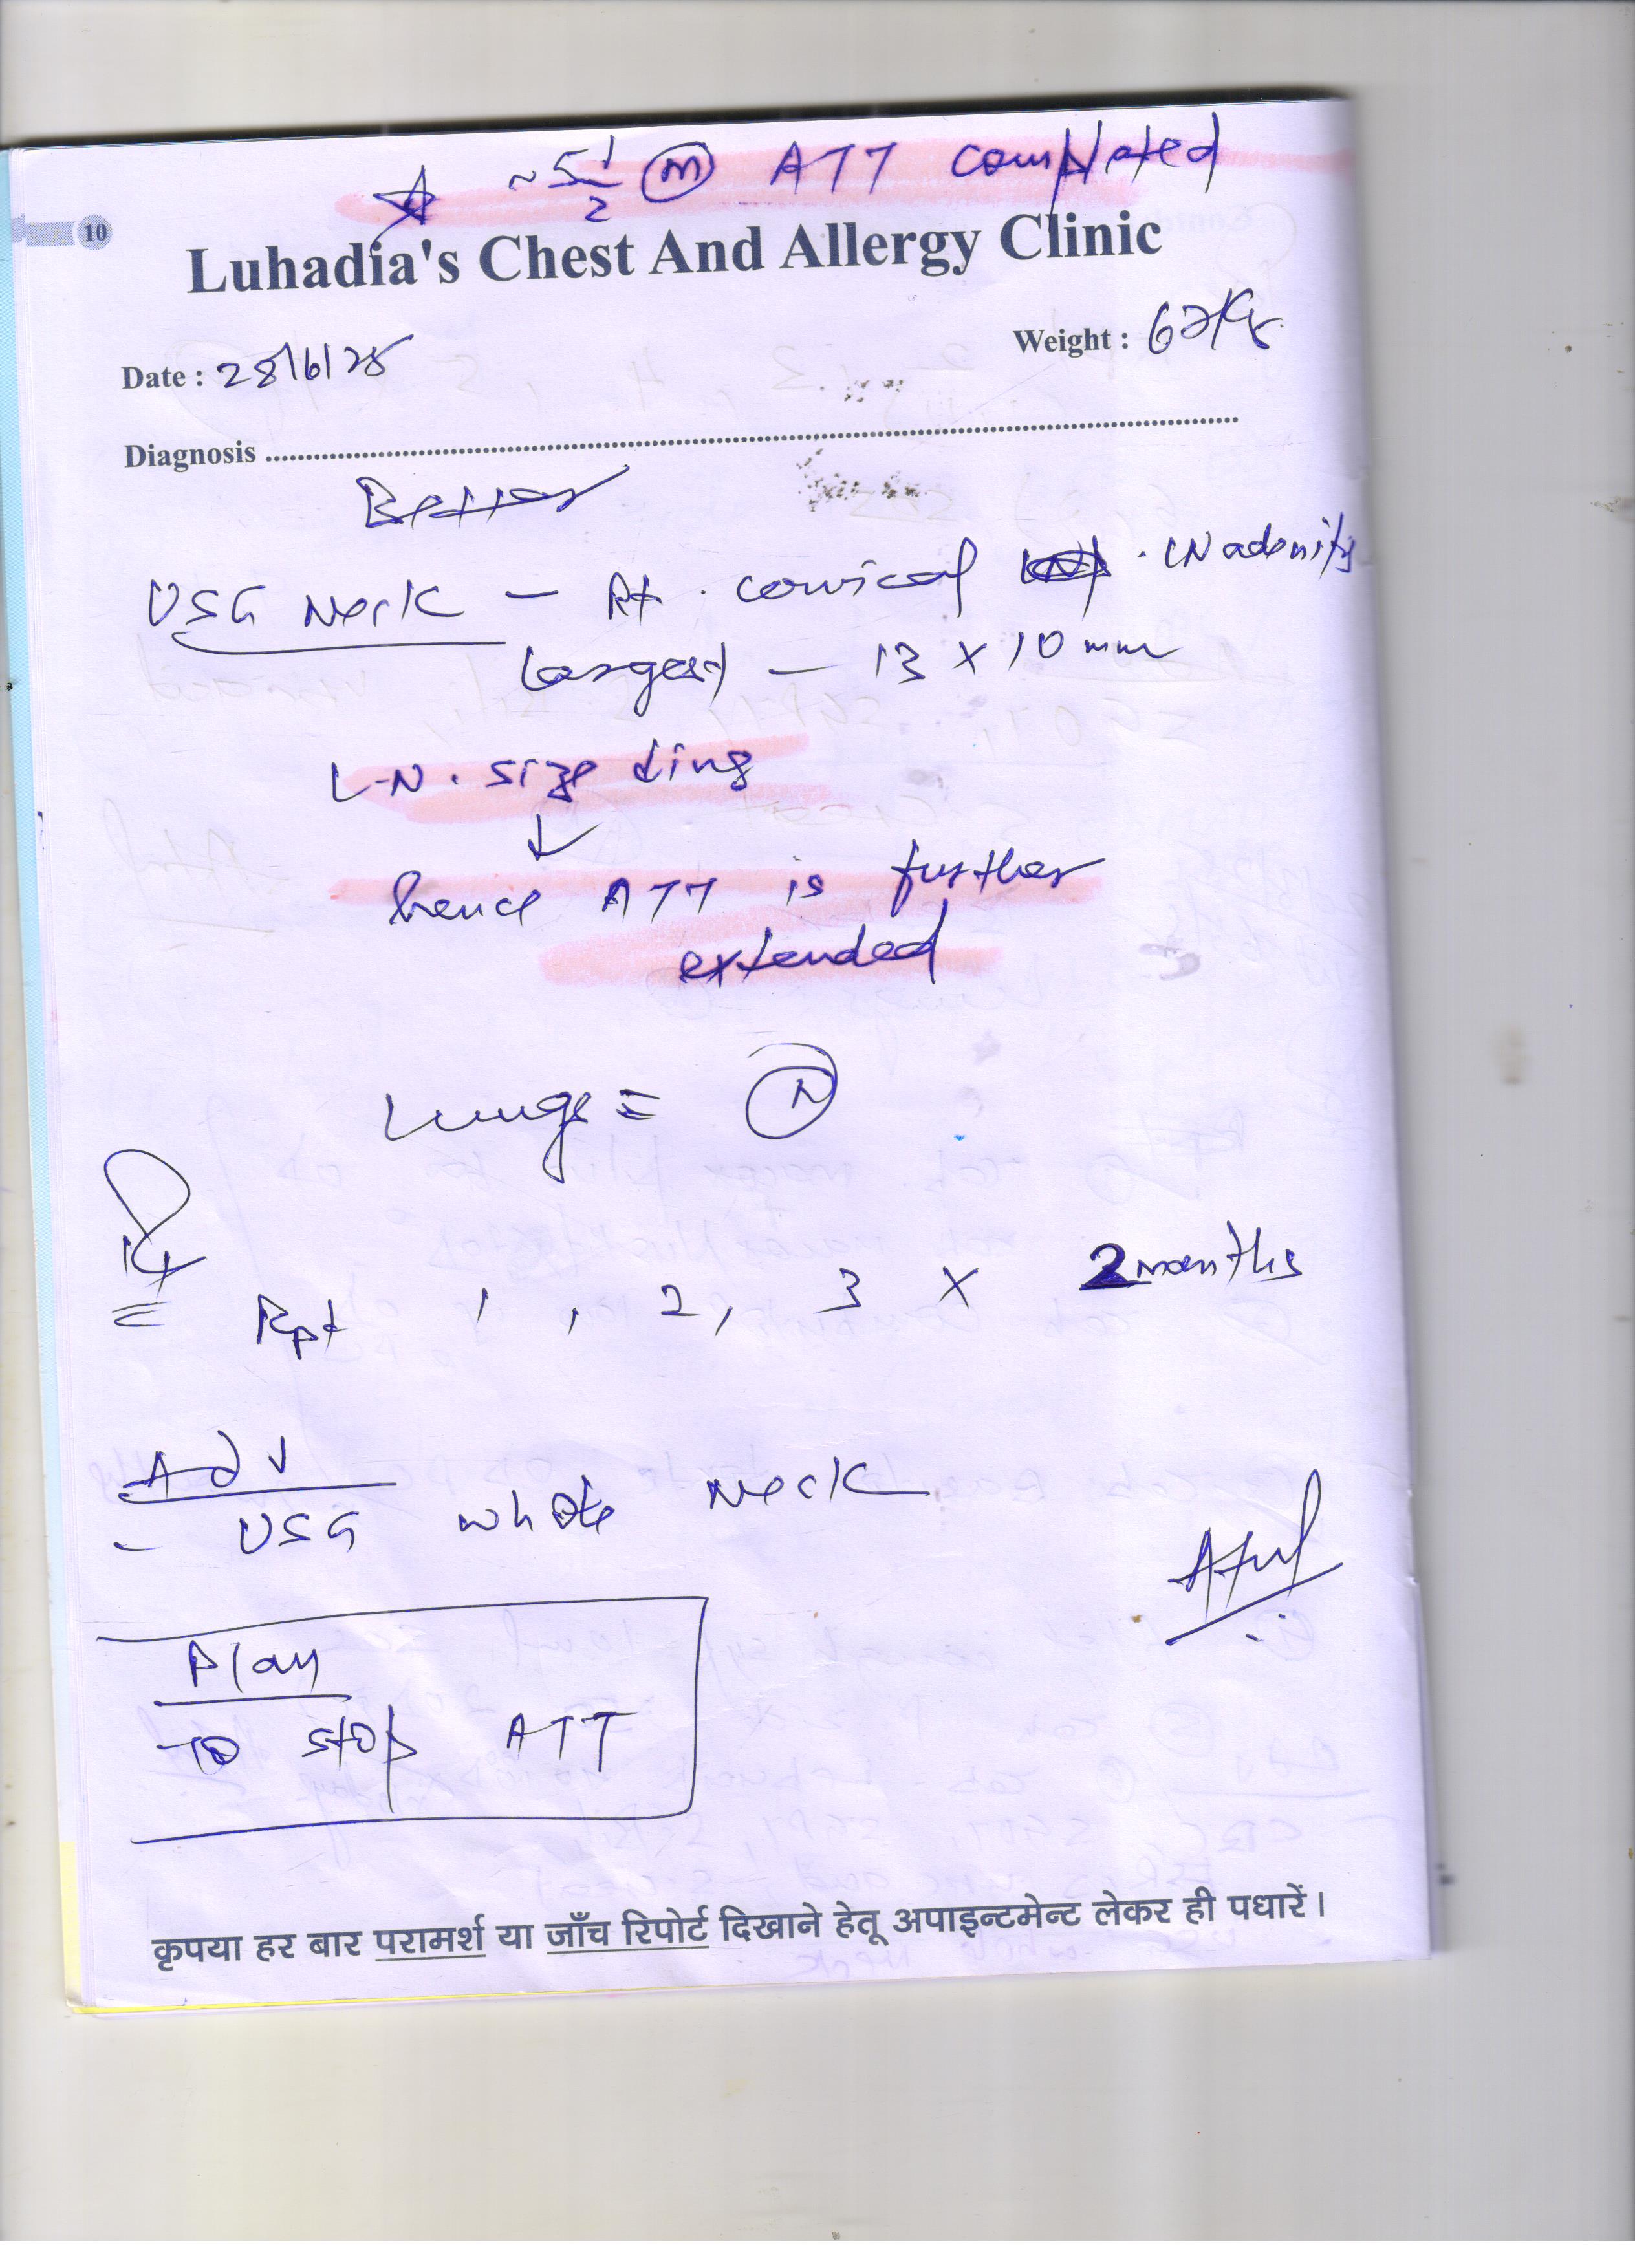 ~5 1/2 (m) ATT completed
10
Luhadia's Chest And Allergy Clinic
Weight : 62Kg
Date : 28/6/25
Diagnosis
Better
USG Neck – Rt. cervical LN adenitis
largest – 13 x 10 mm
L.N. size ↓ing
↓
hence ATT is further
extended
Lungs = (N)
Rx
Rpt 1, 2, 3 x 2 months
Adv
- USG whole Neck
Atul
Plan
To stop ATT
कृपया हर बार परामर्श या जाँच रिपोर्ट दिखाने हेतू अपाइन्टमेन्ट लेकर ही पधारें।